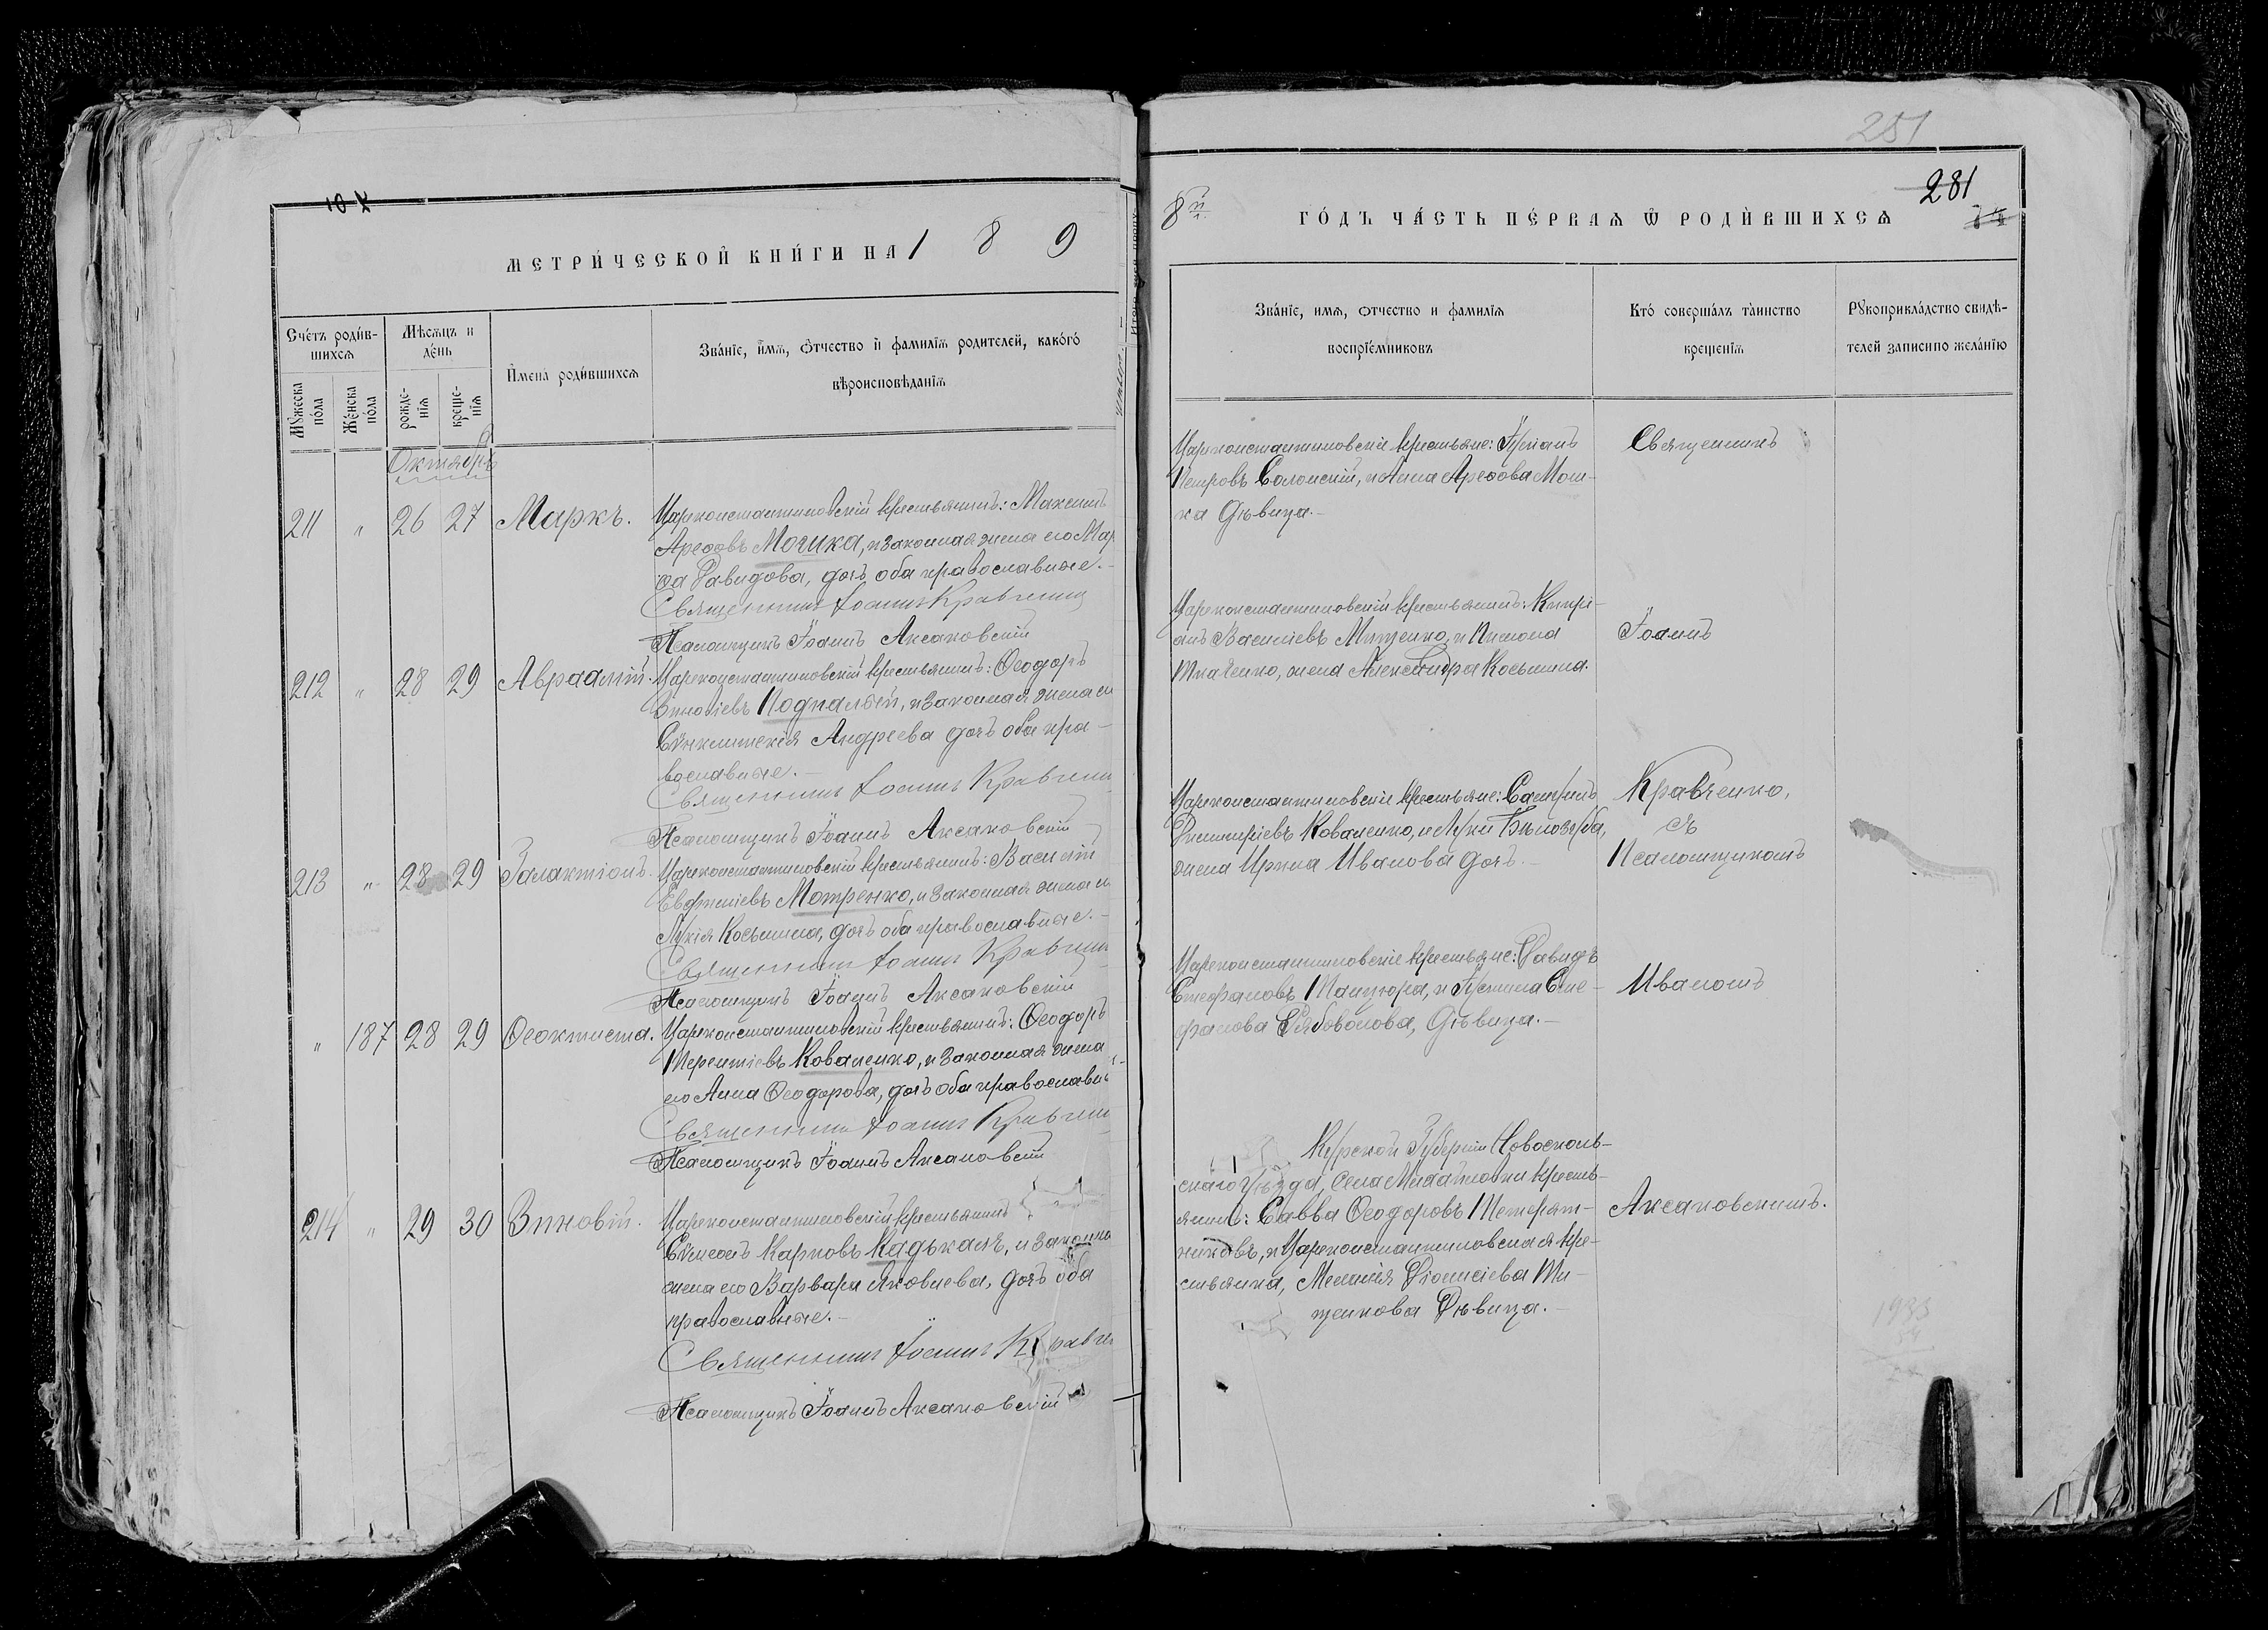 МЕТРИ́ЧЕСКОЙ КНИ́ГИ НА 1 8 9
Сче́тъ роди́в-
шихсѧ
Мѣсѧцъ и
де́нь
Мꙋжеска
по́ла
Же́нска
по́ла
рожде-
нїѧ
креще-
нїѧ
И҆мена̀ роди́вшихсѧ
Зва́нїе, и҆мѧ, ѻ҆́тчество и҆ фамилїѧ родителей, како́гѡ
вѣроисповѣданїѧ
Октябрь
211 " 26 27 Маркъ.
Цареконстантиновскій крестьянинъ: Максимъ
Арефовъ Мошка, и законная жена его Мар
ѳа Давидова, дочь оба православные.-
Священникъ Іоаннъ Кравченко
Псаломщикъ Іоаннъ Аксаковскій
212 " 28 29 Авраамій.
Цареконстантиновскій крестьянинъ: Ѳеодоръ
Зиновіевъ Подпалый, и законная жена его
Сѵнклитикія Андреева дочь оба пра-
вославные.-
Священникъ Іоаннъ Кравченко
Псаломщикъ Іоаннъ Аксаковскій
213 " 28 29 Галактіонъ.
Цареконстантиновскій крестьянинъ: Василій
Евфиміевъ Мотренко, и законная жена его
Лукія Косьмина, дочь оба православные.-
Священникъ Іоаннъ Кравченко
Псаломщикъ Іоаннъ Аксаковскій
" 187 28 29 Ѳеоктиста.
Цареконстантиновскій крестьянинъ: Ѳеодоръ
Терентіевъ Коваленко, и законная жена
его Анна Ѳеодорова, дочь оба православны
Священникъ Іоаннъ Кравченко
Псаломщикъ Іоаннъ Аксаковскій
214 " 29 30 Зиновій.
Цареконстантиновскій крестьянинъ
Сѵмеонъ Карповъ Кадькаля, и законна
жена его Варвара Яковлева, дочь оба
православные.-
Священникъ Іоаннъ Кравчен
Псаломщикъ Іоаннъ Аксаковскій
251
281
8й ГО́ДЪ ЧА́СТЬ ПЕ́РВАѦ Ѡ҆ РОДИ́ВШИХСѦ
Зва́нїе, имѧ, ѻтчество и фамилїѧ
воспрїе́мниковъ
Кто́ соверша́лъ та́инство
крещенїѧ
Рꙋкоприкла́дство свидѣ-
телей записи по жела́нїю
Цареконстантиновскіе крестьяне: Іуліанъ
Петровъ Солонскій, и Анна Арефова Мош-
ка дѣвица.-
Цареконстантиновскій крестьянинъ: Кипрі-
анъ Василіевъ Мищенко, и Пимона
Ткаченко, жена Александра Косьмина.
Цареконстантиновскіе крестьяне:
Димитріевъ Коваленко, и Луки Бѣлозуба,
жена Ирина Иванова дочь.-
Цареконстантиновскіе крестьяне: Давидъ
Стефановъ Танцюра, и Іустина Сте-
фанова Рябоволова, дѣвица.-
Курской Губерніи Новосколь-
скаго уѣзда, села крестья-
янинъ: Савва Ѳеодоровъ Тетерят-
никовъ, и Цареконстантиновская кре-
стьянка, Меланія Діонисіева Ми-
щенкова Дѣвица.-
Священникъ
Іоаннъ
Кравченко,
съ
Псаломщикомъ
Иваномъ
Аксаковскимъ.